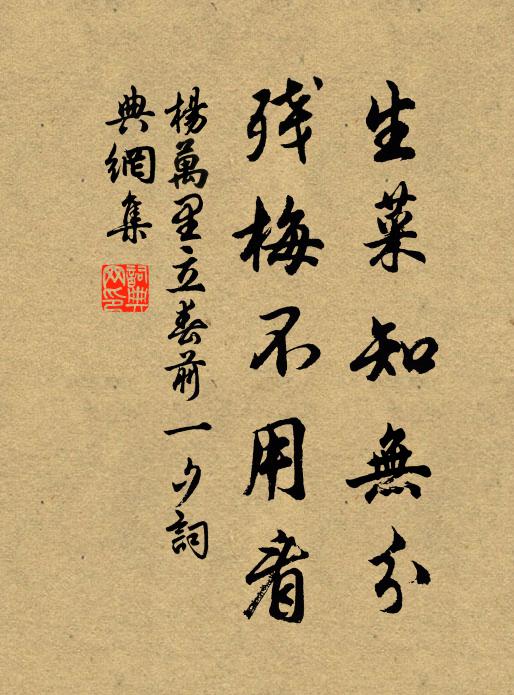 生菜知無分
残梅不用看
楊萬里立春前一夕詞
典網集
詞典網印